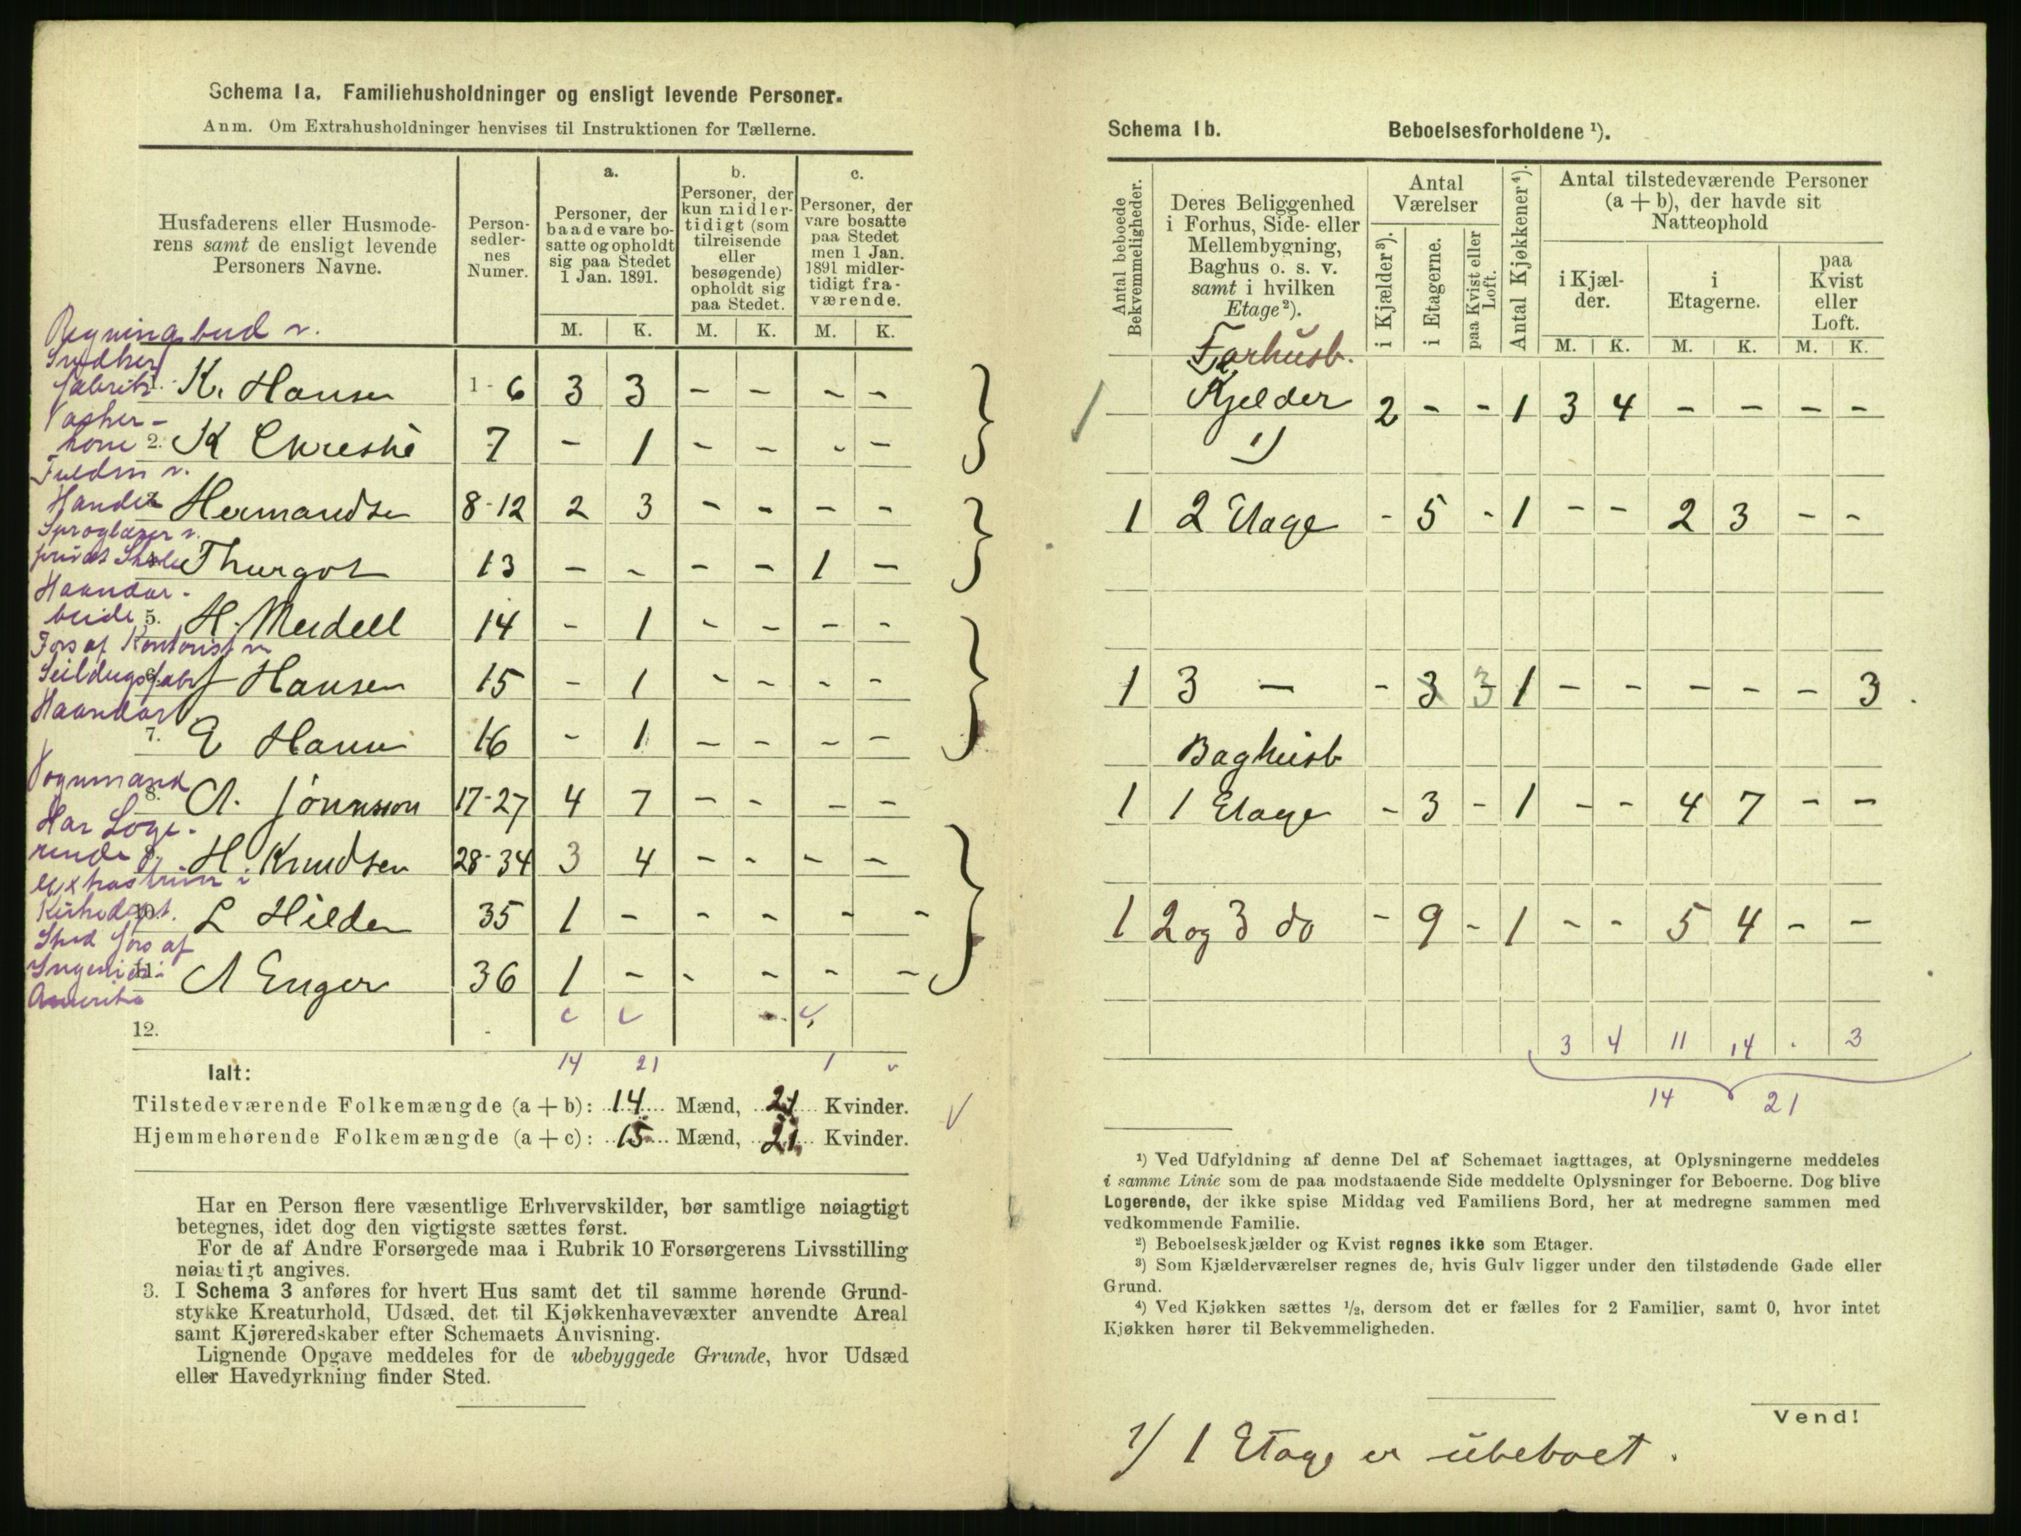 Schema 1a. Familiehusholdninger og ensligt levende Personer.
Anm. Om Extrahusholdninger henvises til Instruktionen for Tællerne.
Husfaderens eller Husmode-
rens samt de ensligt levende
Personers Navne.
Person-
sedler-
nes
Numer.
a.
Personer, der
baade vare bo-
satte og opholdt
sig paa Stedet
1 Jan. 1891.
b.
Personer, der
kun midler-
tidigt (som
tilreisende
eller
besøgende)
opholdt sig
paa Stedet.
c.
Personer, der
vare bosatte
paa Stedet
men 1 Jan.
1891 midler-
tidigt fra-
værende.
M. K. M. K. M. K.
Regningsbud v.
fabrik
K. Hansen 1-6 3 3 - - - -
Vasker-
kone 2. K Christie 7 - 1 - - - -
Fuldm v.
Handel Hermandsen 8-12 2 3 - - - -
Sproglærer v.
privat Skole Thurgot 13 - - - - 1 -
Haandar-
beide 5. H. Meidell 14 - 1 - - - -
Fors af Kontorist v
Seildugsfabr J Hansen 15 - 1 - - - -
Haandar
7. E Hansen 16 - 1 - - - -
Vognmand
8. A. Jónnsson 17-27 4 7 - - - -
Har Loge-
rende 9. H. Knudsen 28-34 3 4 - - - -
Extraskriver i
Kirkedept. 10. L Hilden 35 1 - - - - -
Stud fors af
Ingeniør i 11. A Enger 36 1 - - - - -
Amerika
12.
14 21 1
Ialt:
Tilstedeværende Folkemængde (a + b): 14 Mænd, 21 Kvinder.
Hjemmehørende Folkemængde (a + c): 15 Mænd, 21 Kvinder.
Har en Person flere væsentlige Erhvervskilder, bør samtlige nøiagtigt
betegnes, idet dog den vigtigste sættes først.
For de af Andre Forsørgede maa i Rubrik 10 Forsørgerens Livsstilling
nøiagtigt angives.
3. I Schema 3 anføres for hvert Hus samt det til samme hørende Grund-
stykke Kreaturhold, Udsæd, det til Kjøkkenhavevæxter anvendte Areal
samt Kjøreredskaber efter Schemaets Anvisning.
Lignende Opgave meddeles for de ubebyggede Grunde, hvor Udsæd
eller Havedyrkning finder Sted.
Schema 1b. Beboelsesforholdene ¹).
Antal beboede
Bekvemmeligheder.
Deres Beliggenhed
i Forhus, Side- eller
Mellembygning,
Baghus o. s. v.
samt i hvilken
Etage ²).
Antal
Værelser
i Kjælder ³).
i Etagerne.
paa Kvist eller
Loft.
Antal Kjøkkener ⁴).
Antal tilstedeværende Personer
(a + b), der havde sit
Natteophold
i Kjæl-
der.
i
Etagerne.
paa
Kvist
eller
Loft.
M. K. M. K. M. K.
Forhusb.
1 Kjelder 2 - - 1 3 4 - - - -
1)
1 2 Etage - 5 - 1 - - 2 3 - -
1 3 — - 3 3 1 - - - - - 3
Baghusb
1 1 Etage - 3 - 1 - - 4 7 - -
1 2 og 3 do - 9 - 1 - - 5 4 - -
3 4 11 14 . 3
14 21
¹) Ved Udfyldning af denne Del af Schemaet iagttages, at Oplysningerne meddeles
i samme Linie som de paa modstaaende Side meddelte Oplysninger for Beboerne. Dog blive
Logerende, der ikke spise Middag ved Familiens Bord, her at medregne sammen med
vedkommende Familie.
²) Beboelseskjælder og Kvist regnes ikke som Etager.
³) Som Kjælderværelser regnes de, hvis Gulv ligger under den tilstødende Gade eller
Grund.
⁴) Ved Kjøkken sættes ¹/₂, dersom det er fælles for 2 Familier, samt 0, hvor intet
Kjøkken hører til Bekvemmeligheden.
Vend!
1) 1 Etage er ubeboet.